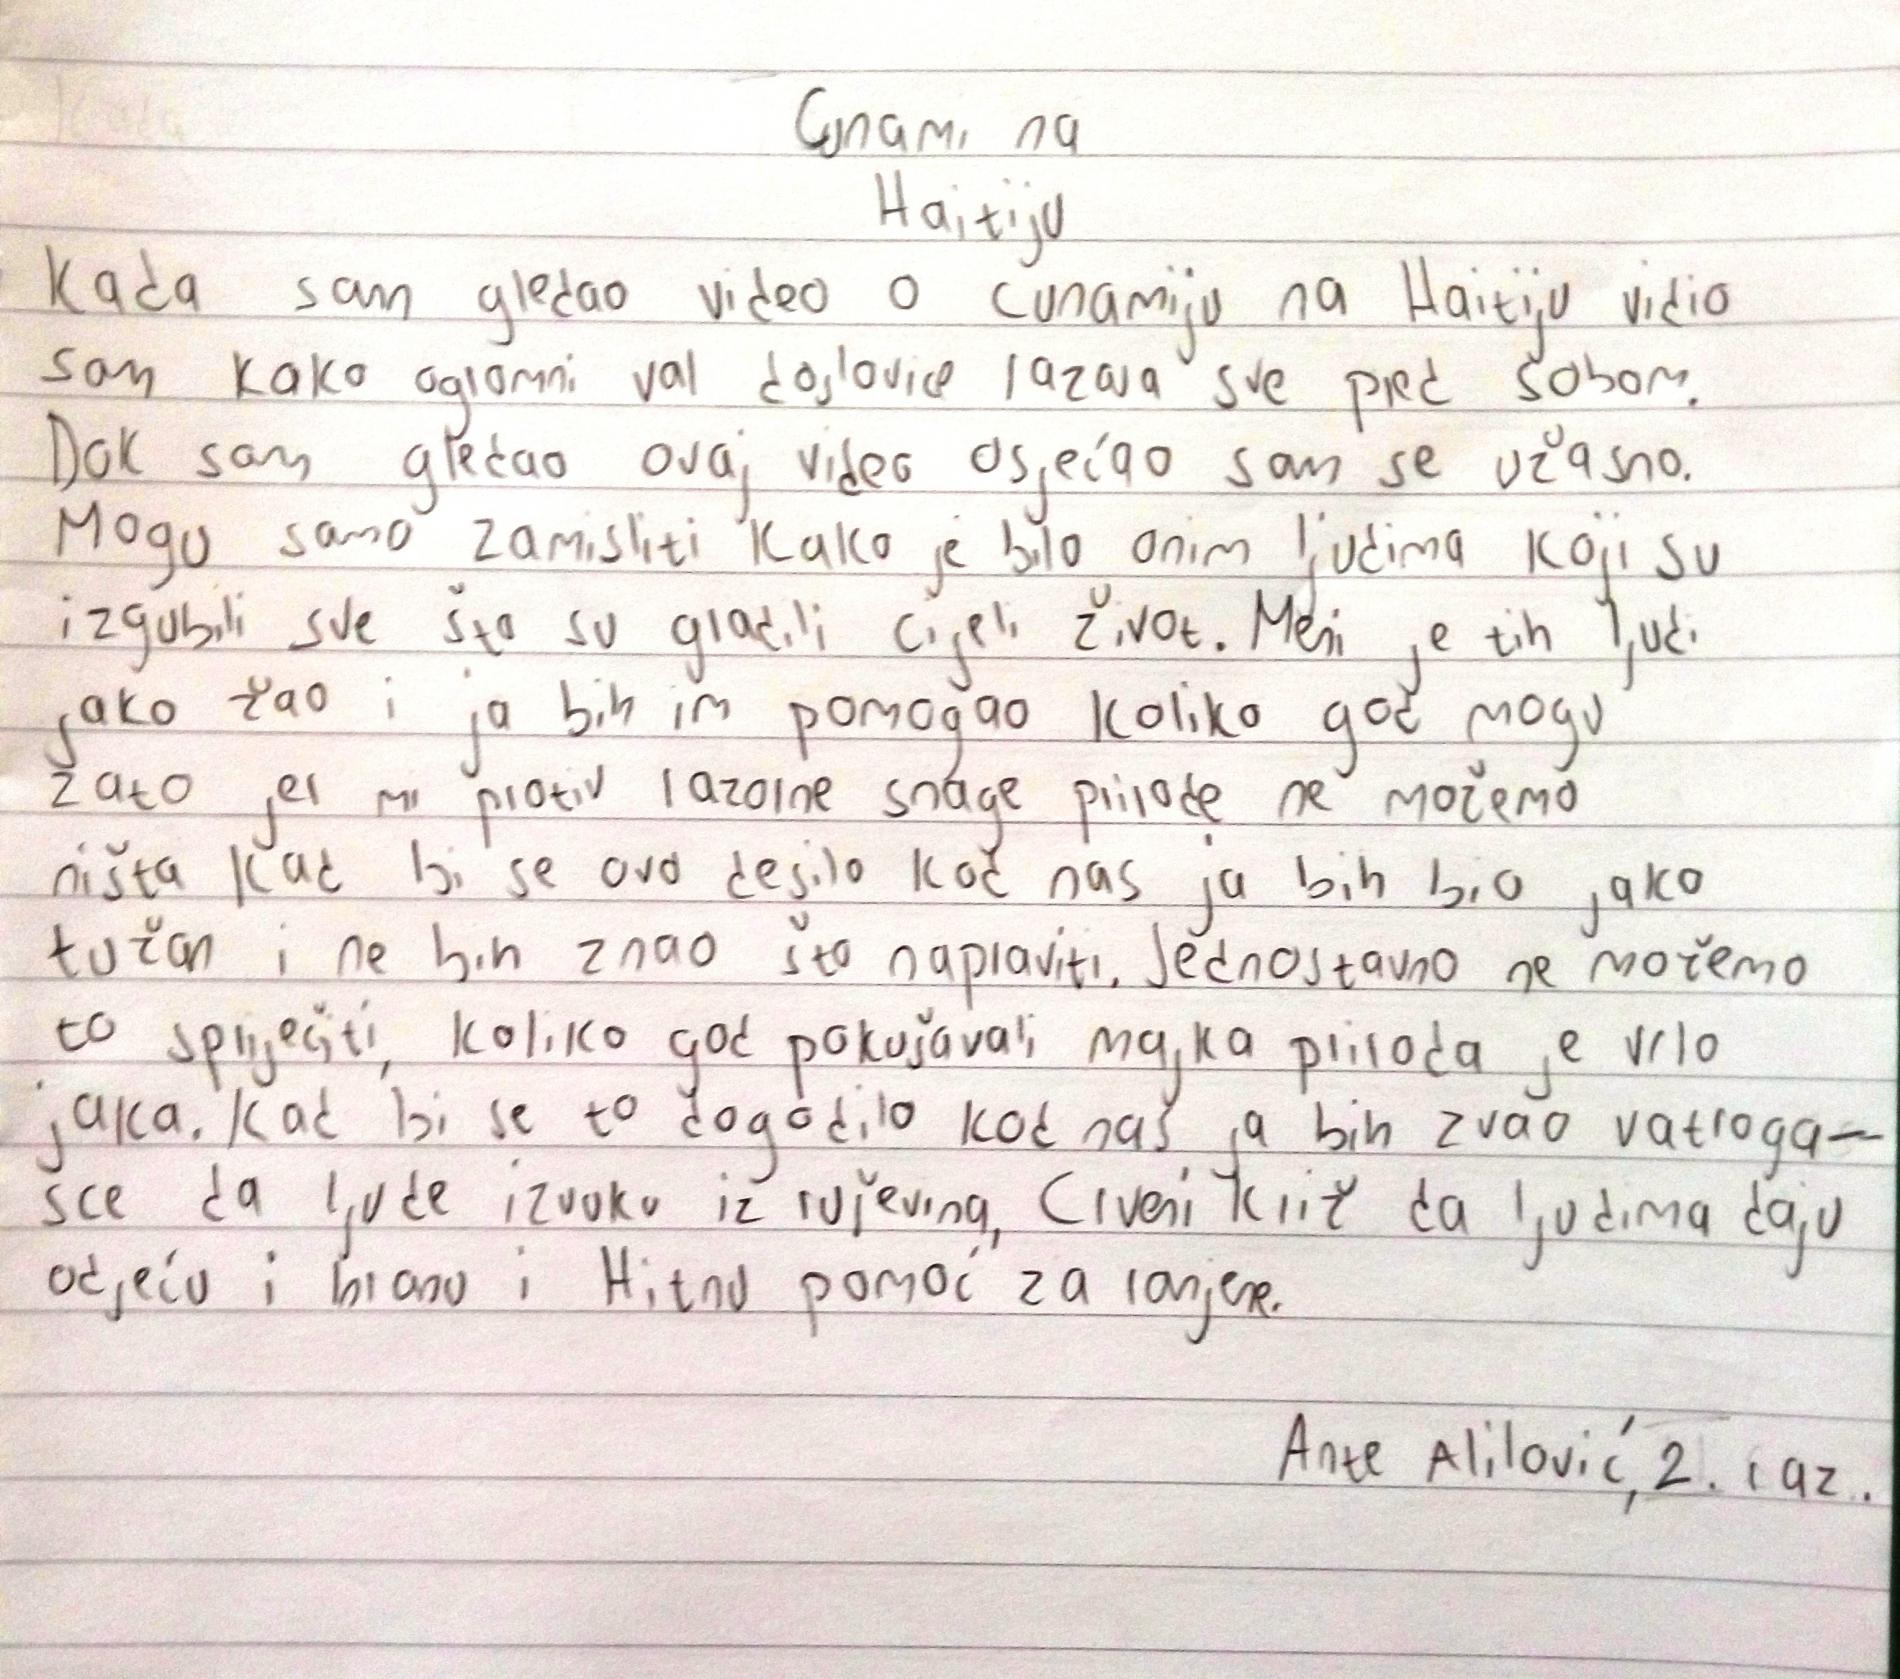 Cunami na
Haitiju
Kada sam gledao video o cunamiju na Haitiju vidio
sam kako ogromni val doslovice razara sve pred sobom.
Dok sam gledao ovaj video osjećao sam se užasno.
Mogu samo zamisliti kako je bilo onim ljudima koji su
izgubili sve što su gradili cijeli život. Meni je tih ljudi
jako žao i ja bih im pomogao koliko god mogu
zato jer mi protiv razorne snage prirode ne možemo
ništa Kad bi se ovo desilo kod nas ja bih bio jako
tužan i ne bih znao što napraviti. Jednostavno ne možemo
to spriječiti, koliko god pokušavali majka priroda je vrlo
jaka. Kad bi se to dogodilo kod nas ja bih zvao vatroga-
sce da ljude izvuku iz ruševina, Crveni križ da ljudima daju
odjeću i hranu i Hitnu pomoć za ranjene.
Ante Alilović, 2. raz.